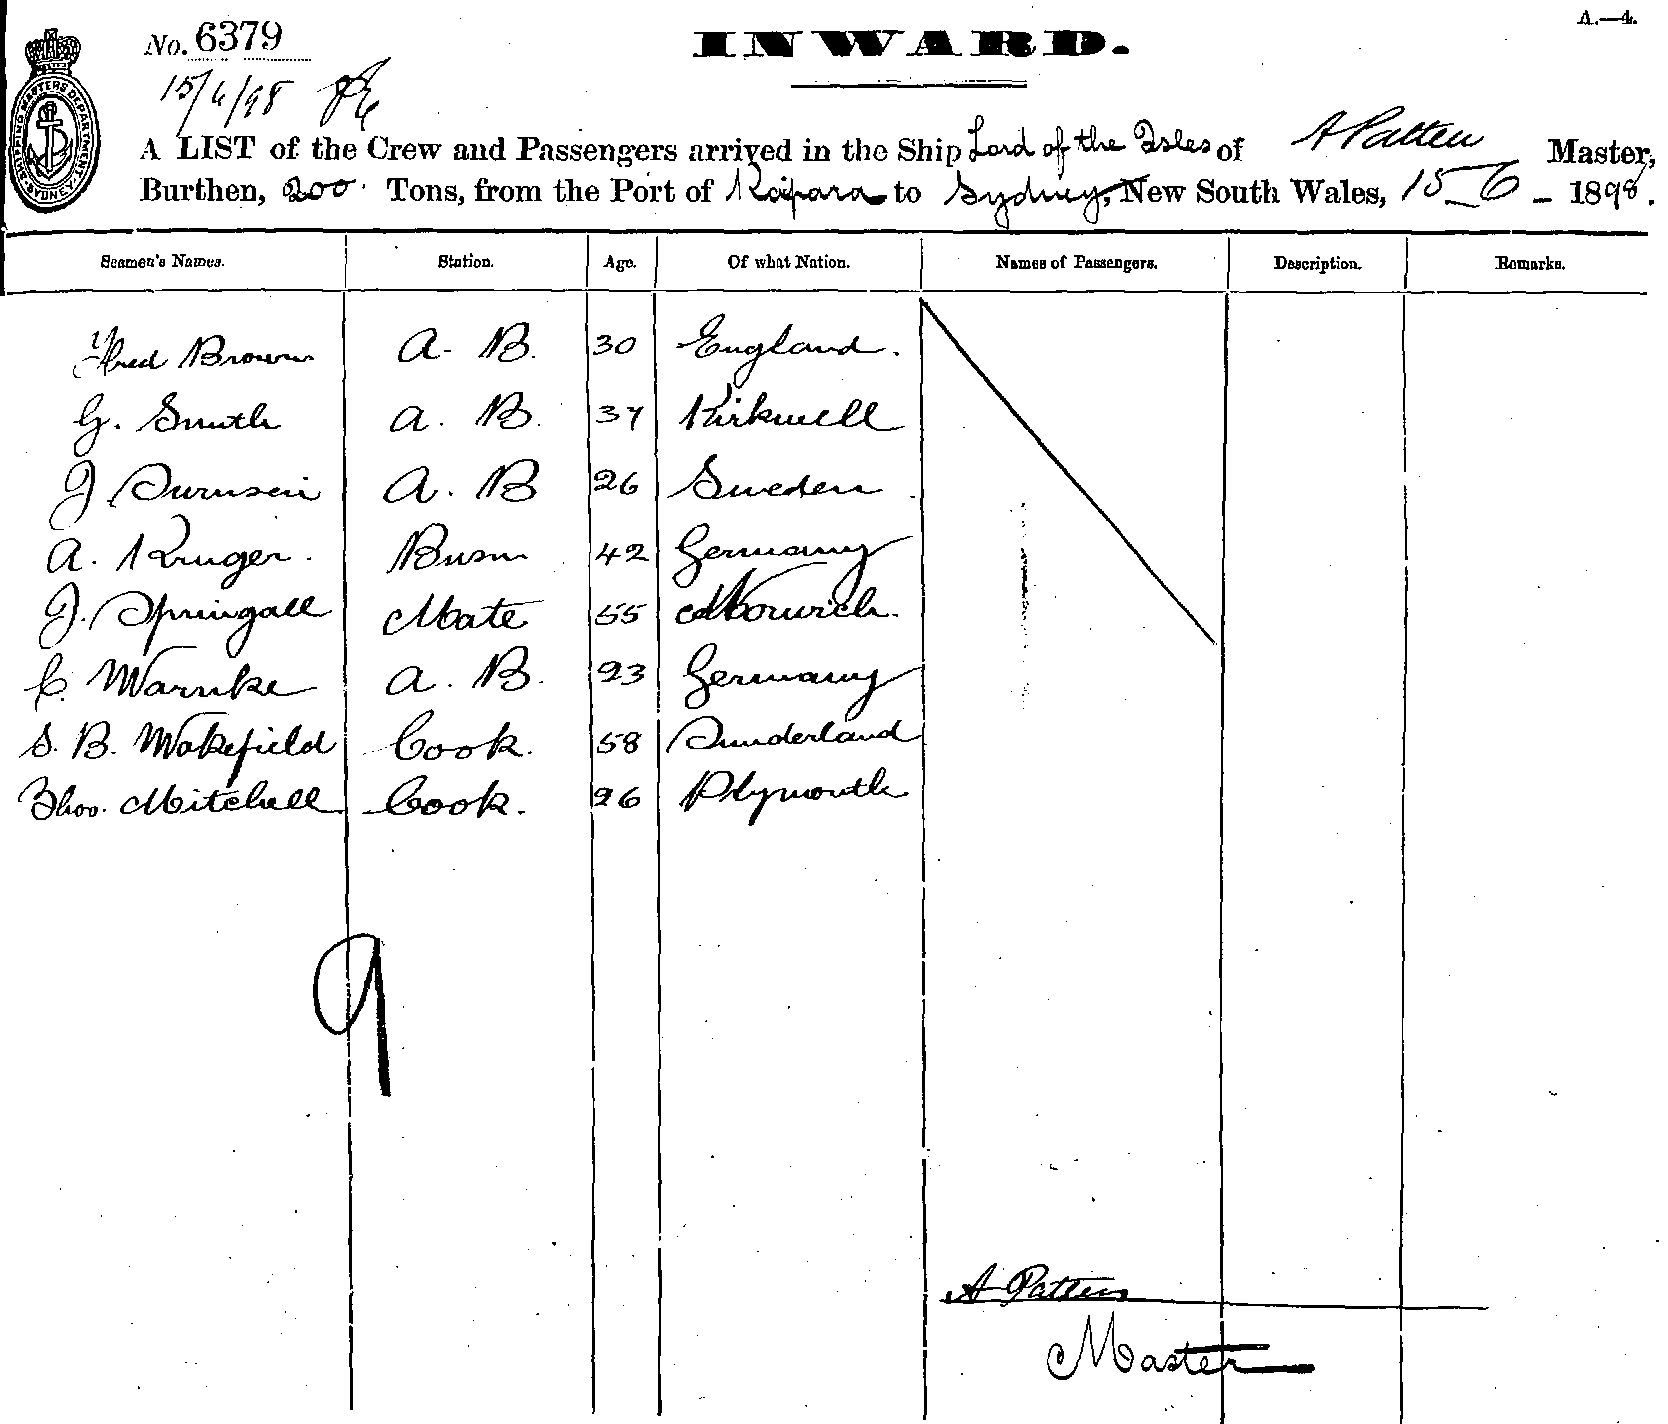 A.—4.
No. 6379
INWARD.
15/6/98
A LIST of the Crew and Passengers arrived in the Ship Lord of the Isles of A Patten Master,
Burthen, 200 Tons, from the Port of Kaipara to Sydney, New South Wales, 15_6 - 1898.
SHIPPING MASTERS DEPARTMENT SYDNEY
Seamen's Names. Station. Age. Of what Nation. Names of Passengers. Description. Remarks.
Fred Brown A. B. 30 England.
G. Smith A. B. 37 Kirkwell
J A. B 26 Sweden
A. Kruger. Bosn 42 Germany
J. Springall Mate 55 Norwich.
C. Warnke A. B. 23 Germany
S. B. Wakefield Cook. 58 Sunderland
Thos. Mitchell Cook. 26 Plymouth
9
A Patten
Master